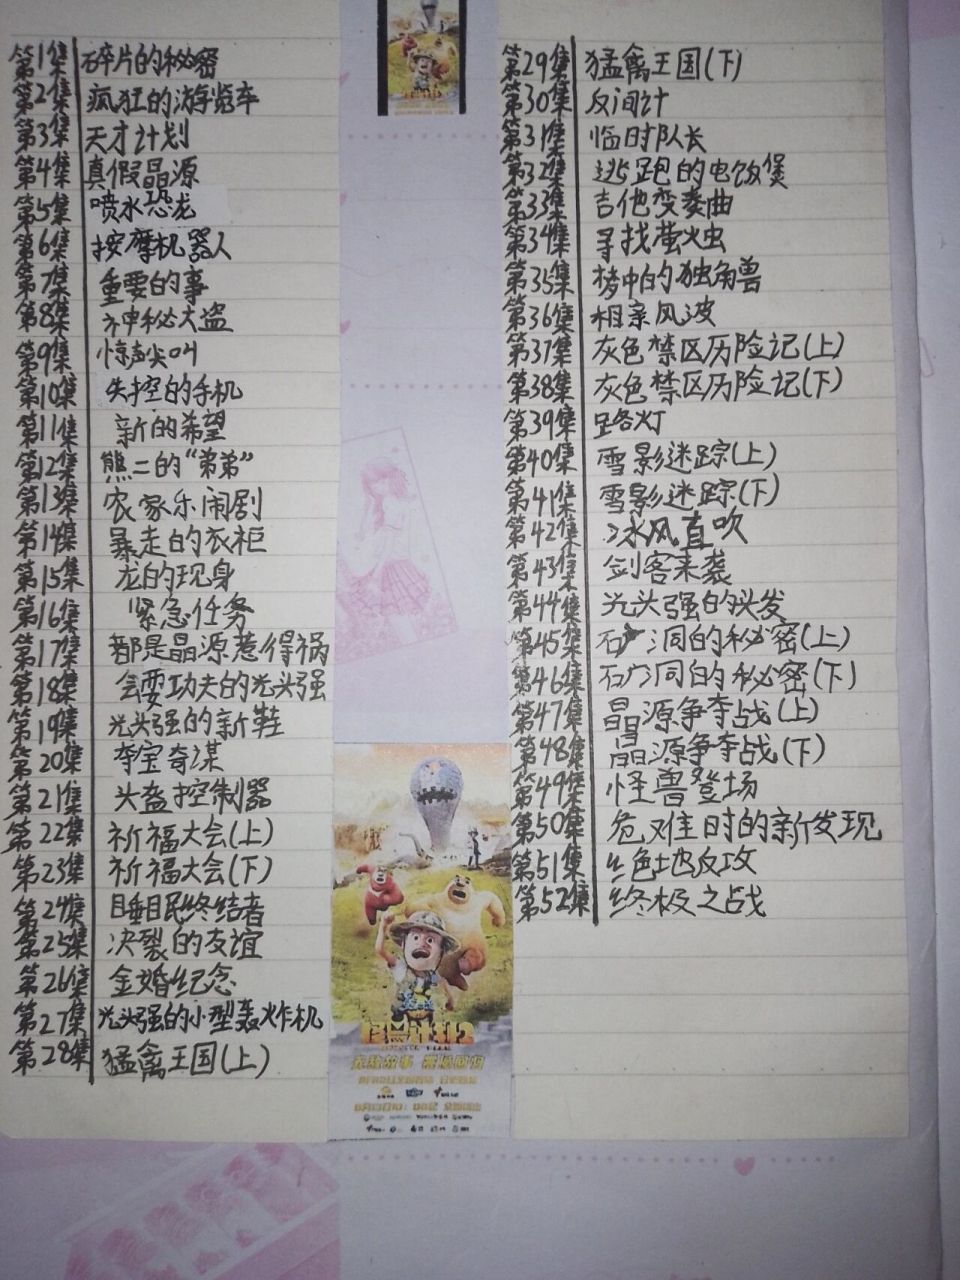 第1集 碎片的秘密
第2集 疯狂的游览车
第3集 天才计划
第4集 真假晶源
第5集 喷水恐龙
第6集 按摩机器人
第7集 重要的事
第8集 神秘大盗
第9集 惊声尖叫
第10集 失控的手机
第11集 新的希望
第12集 熊二的“弟弟”
第13集 农家乐闹剧
第14集 暴走的衣柜
第15集 龙的现身
第16集 紧急任务
第17集 都是晶源惹得祸
第18集 会耍功夫的光头强
第19集 光头强的新鞋
第20集 夺宝奇谋
第21集 头盔控制器
第22集 祈福大会(上)
第23集 祈福大会(下)
第24集 睡眠终结者
第25集 决裂的友谊
第26集 金婚纪念
第27集 光头强的小型轰炸机
第28集 猛禽王国(上)
第29集 猛禽王国(下)
第30集 反间计
第31集 临时队长
第32集 逃跑的电饭煲
第33集 吉他变奏曲
第34集 寻找萤火虫
第35集 梦中的独角兽
第36集 相亲风波
第37集 灰色禁区历险记(上)
第38集 灰色禁区历险记(下)
第39集 路灯
第40集 雪影迷踪(上)
第41集 雪影迷踪(下)
第42集 冰风直吹
第43集 剑客来袭
第44集 光头强的头发
第45集 石洞的秘密(上)
第46集 石门洞的秘密(下)
第47集 晶源争夺战(上)
第48集 晶源争夺战(下)
第49集 怪兽登场
第50集 危难时的新发现
第51集 绝地反攻
第52集 终极之战